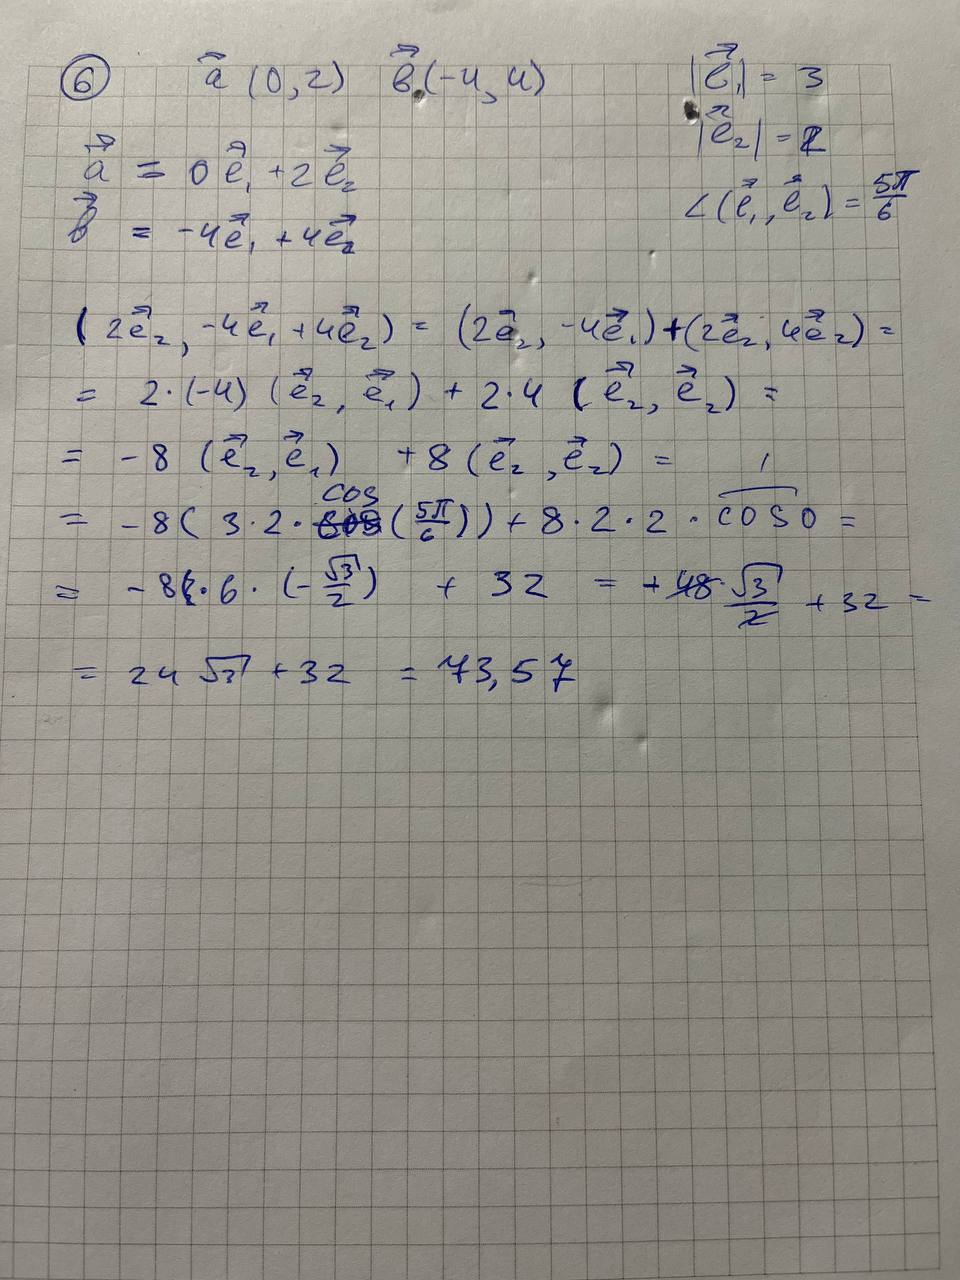 ⑥ a⃗ (0, 2) b⃗ (-4, 4) |e⃗₁| = 3
|e⃗₂| = 2
a⃗ = 0e⃗₁ + 2e⃗₂
∠(e⃗₁, e⃗₂) = 5π/6
b⃗ = -4e⃗₁ + 4e⃗₂
(2e⃗₂, -4e⃗₁ + 4e⃗₂) = (2e⃗₂, -4e⃗₁) + (2e⃗₂, 4e⃗₂) =
= 2·(-4) (e⃗₂, e⃗₁) + 2·4 (e⃗₂, e⃗₂) =
= -8 (e⃗₂, e⃗₁) + 8 (e⃗₂, e⃗₂) =
= -8( 3·2·cos(5π/6)) + 8·2·2·cos0 =
= -8·6·(-√3/2) + 32 = +48·√3/2 + 32 =
= 24√3 + 32 = 73,57